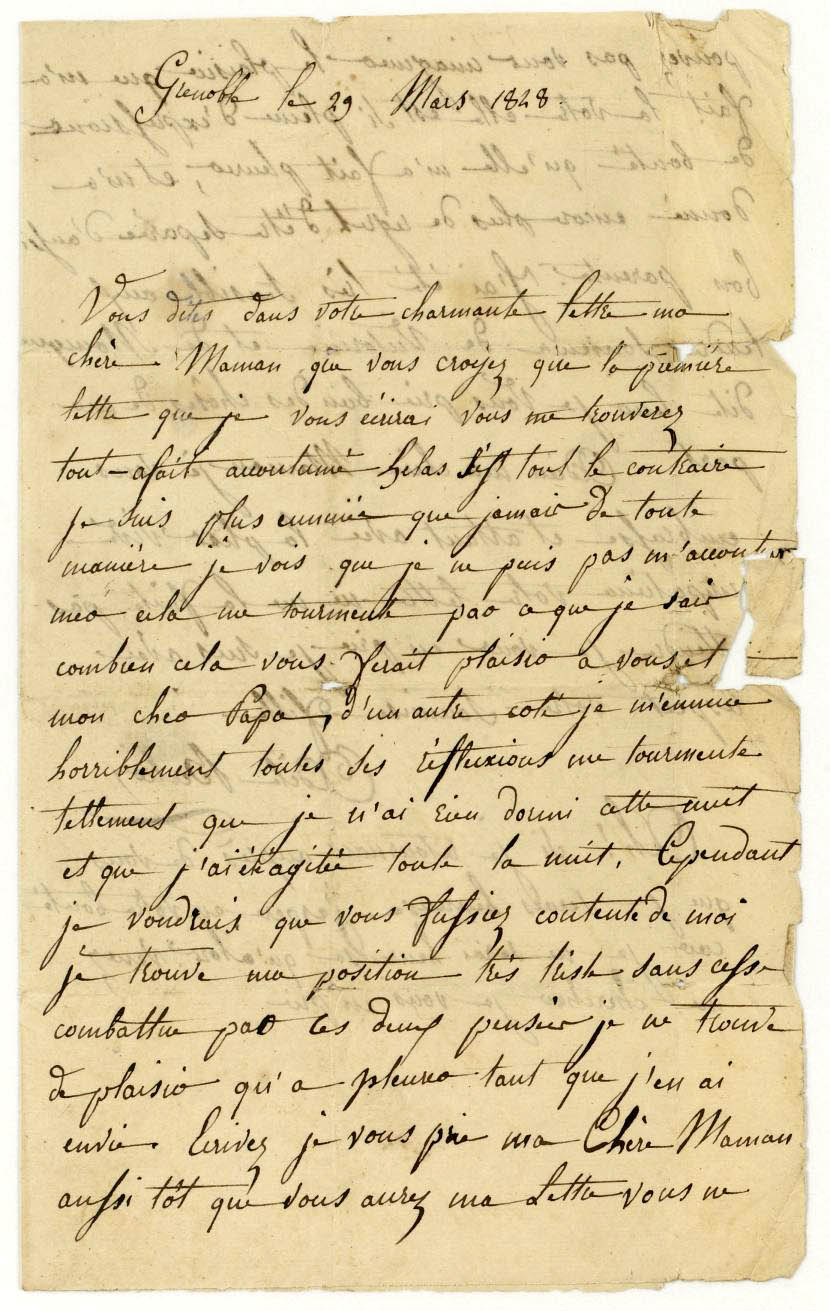 Grenoble le 29 Mars 1828.
Vous dites dans votre charmante lettre ma
chère Maman que vous croyez que la première
lettre que je vous écrirai vous me trouverez
tout-afait accoutumé helas s'est tout le contraire
je suis plus ennuiée que jamais de toute
manière je vois que je ne puis pas m'accoutumer
mes cela me tourmente par ce que je sais
combien cela vous ferait plaisir a vous et
mon cher Papa, d'un autre coté je m'ennuie
horriblement toutes ses réflexions me tourmente
tettement que je n'ai rien dormi cette nuit
et que j'ai étéagitée toute la nuit. Cependant
je voudrais que vous fussiez contente de moi
je trouve ma position très triste sans cesse
combattue par ces deux pensées je ne trouve
de plaisir qu'a pleurer tant que j'en ai
envie. Ecrivez je vous prie ma Chère Maman
aussi tôt que vous aurez ma Lettre vous ne